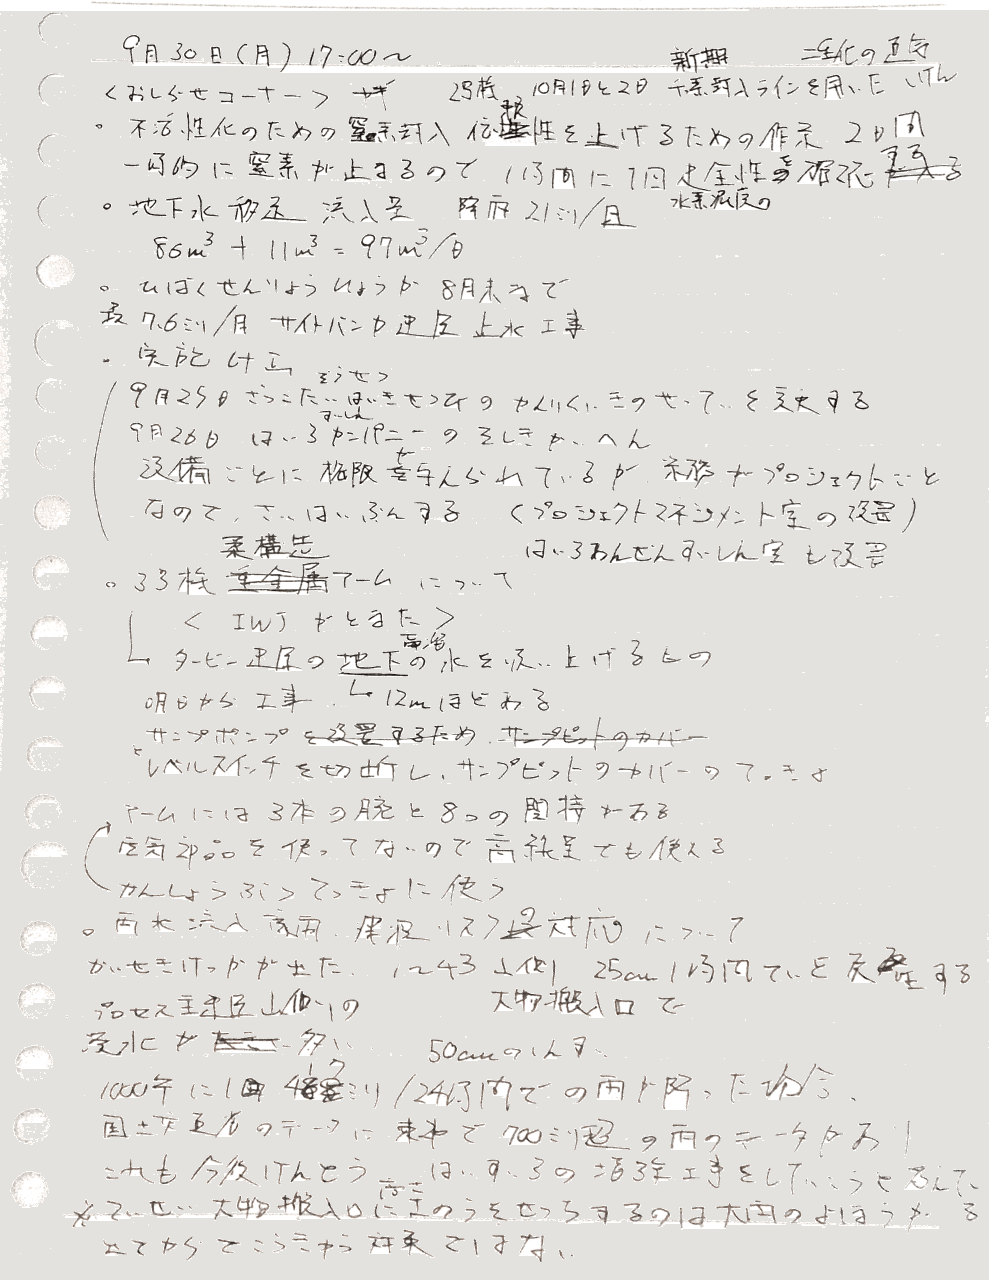 9月30日(月) 17:00〜 新期 二重化の通気
<おしらせコーナー> 2号機 10月1日と2日 チッ素封入ラインを用いた いけん
・不活性化のための窒素封入 信頼性を上げるための作業 2日間
一時的に窒素が止まるので 1時間に1回 安全性を確認する
水素濃度の
・地下水移送 流入量 降雨21ミリ/日
86m³ + 11m³ = 97m³/日
・ひばくせんりょうひょうか 8月末まで
最7.6ミリ/月 サイトバンカ建屋 止水工事
・実施計画
ぞうせつ
9月25日 ざっこたいはいきせつびの かんりくいきのせっていを変更する
すいしん
9月26日 はいろカンパニーのそしきかいへん
設備ごとに権限が与えられているが 業務がプロジェクトごと
なので、さいはいぶんする (プロジェクトマネジメント室の設置)
柔構造 はいろあんぜんすいしん室も設置
・3号機 重金属アーム について
<IWJがとまた>
タービン建屋の地下の水を吸い上げるもの
明日から工事 12mほどある
サンプポンプを設置するため サンプピットのカバー
と
レベルスイッチを切断し、サンプピットのカバーのてっきょ
アームには3本の腕と8つの関接がある
電気部品を使ってないので高線量でも使える
かんしょうぶつてっきょに使う
・雨水流入 対応について
かいせきけっかが出た、1〜4号 山側 25cm 1時間ていど 発生する
プロセス主建屋山側の 大物搬入口で
浸水が 多い 50cmのしんすい
1000年に1回 ミリ/24時間での雨が降った場合、
国土交通省のデータに 東北で700ミリ超の雨のデータがあり
これも今後けんとう はいすいろの増強工事をしていこうと考えて
大物搬入口に をせっちするのは大雨のよほうが
出てからで こうきゅう対策ではない